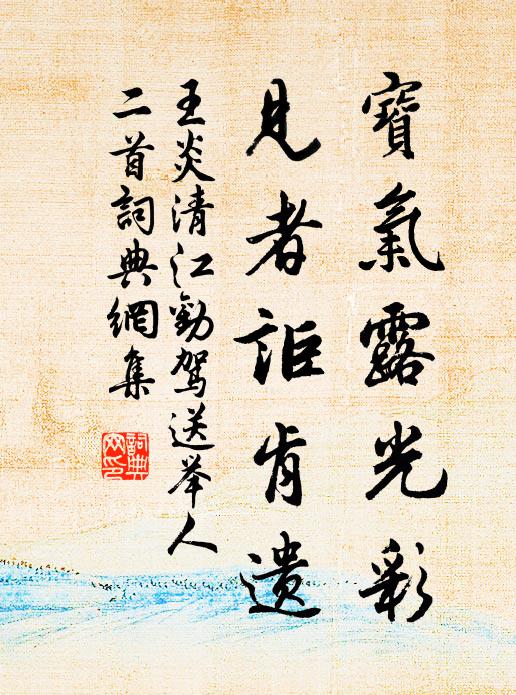 寶氣露光彩
見者詎肯遺
王炎清江勸駕送举人
二首詞典網集
詞典
网印